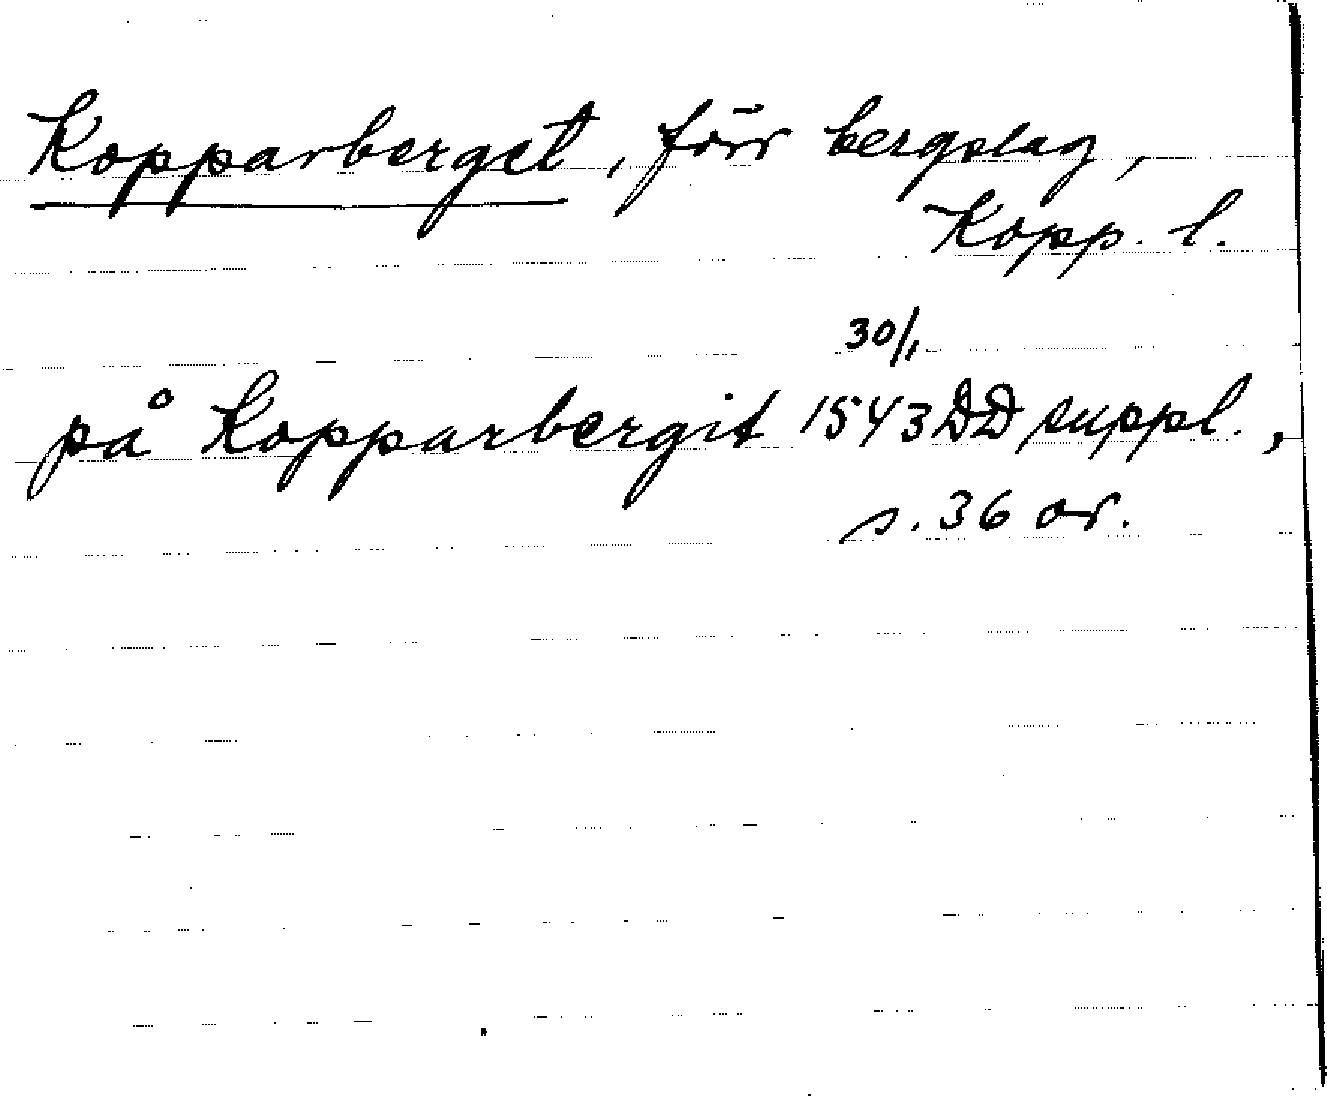 Kopparberget, förr bergslag,
Kopp. l.
30/1
på Kopparbergit 1543 DD suppl.,
s. 36 or.